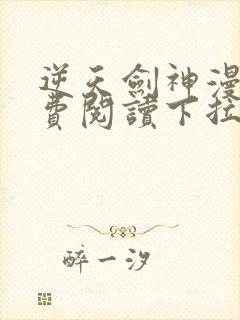 逆天劍神漫
費閱讀下拉
醉一汐